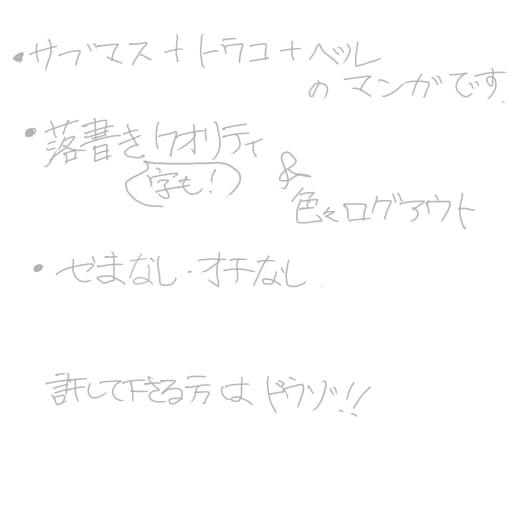 ・サブマス+トウコ+ベル
のマンガです.
・落書きクオリティ
(字も!)
&
色々ログアウト
・ぜまなし・オチなし.
許して下さる方はドウゾ!!